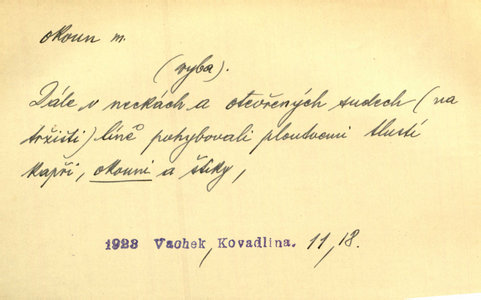 okoun m.
(ryba).
Dále v neckách a otevřených sudech (na
tržišti) líně pohybovali ploutvemi tlustí
kapři, okouni a štiky,
1923 Vachek, Kovadlina. 11, 18.